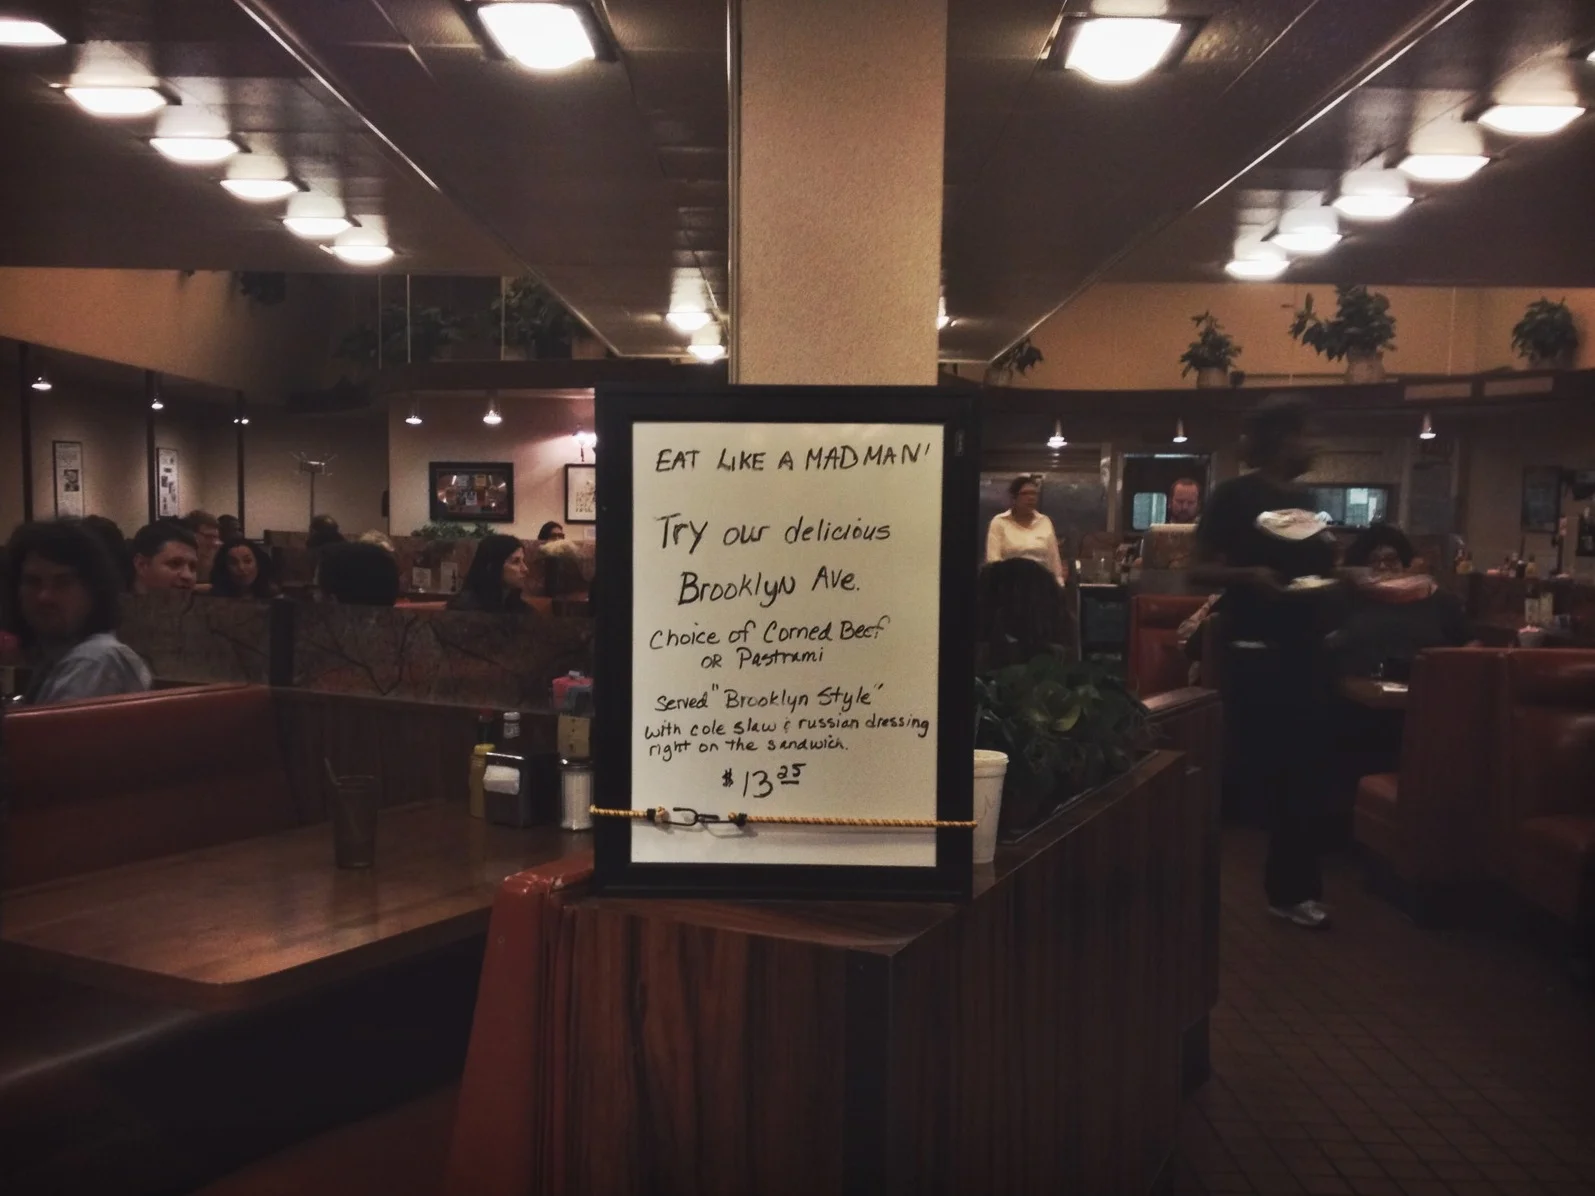 EAT LIKE A MADMAN!
Try our delicious
Brooklyn Ave.
Choice of Corned Beef
OR Pastrami
Served "Brooklyn Style"
with cole slaw & russian dressing
right on the sandwich.
$13 25